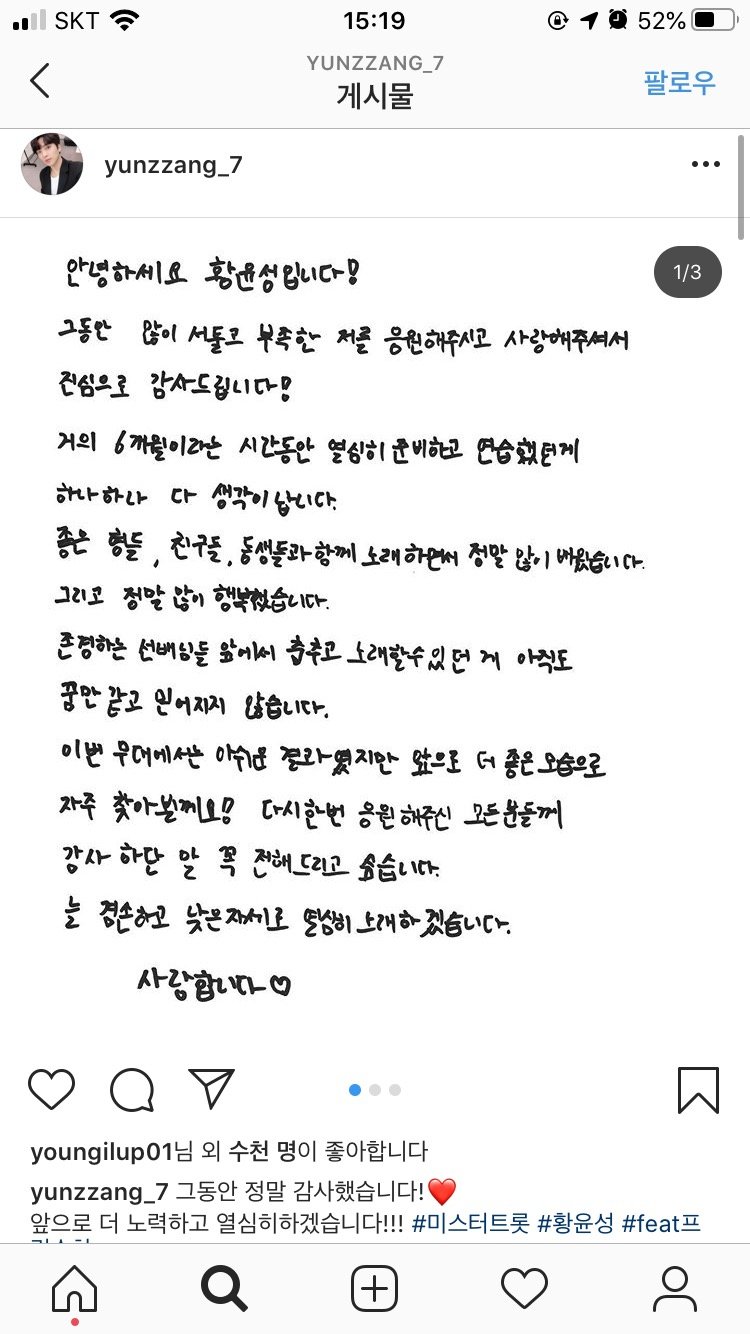 SKT 15:19 52%
YUNZZANG_7
게시물
팔로우
yunzzang_7
1/3
안녕하세요 황윤성입니다!
그동안 많이 서툴고 부족한 저를 응원해주시고 사랑해주셔서
진심으로 감사드립니다!
거의 6개월이라는 시간동안 열심히 준비하고 연습했던게
하나하나 다 생각이 납니다.
좋은 형들, 친구들, 동생들과 함께 노래하면서 정말 많이 배웠습니다.
그리고 정말 많이 행복했습니다.
존경하는 선배님들 앞에서 춤추고 노래할수 있던 게 아직도
꿈만 같고 믿어지지 않습니다.
이번 무대에서는 아쉬운 결과였지만 앞으로 더 좋은 모습으로
자주 찾아뵐께요! 다시한번 응원해주신 모든분들께
감사 하단 말 꼭 전해드리고 싶습니다.
늘 겸손하고 낮은자세로 열심히 노래하겠습니다.
사랑합니다♡
youngilup01님 외 수천 명이 좋아합니다
yunzzang_7 그동안 정말 감사했습니다!❤️
앞으로 더 노력하고 열심히하겠습니다!!! #미스터트롯 #황윤성 #feat프